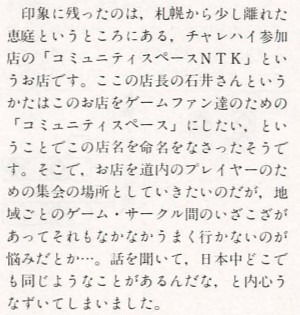 印象に残ったのは，札幌から少し離れた
恵庭というところにある，チャレハイ参加
店の「コミュニティスペースＮＴＫ」とい
うお店です。ここの店長の石井さんという
かたはこのお店をゲームファン達のための
「コミュニティスペース」にしたい，とい
うことでこの店名を命名をなさったそうで
す。そこで，お店を道内のプレイヤーのた
めの集会の場所としていきたいのだが，地
域ごとのゲーム・サークル間のいざこざが
あってそれもなかなかうまく行かないのが
悩みだとか…。話を聞いて，日本中どこで
も同じようなことがあるんだな，と内心う
なずいてしまいました。